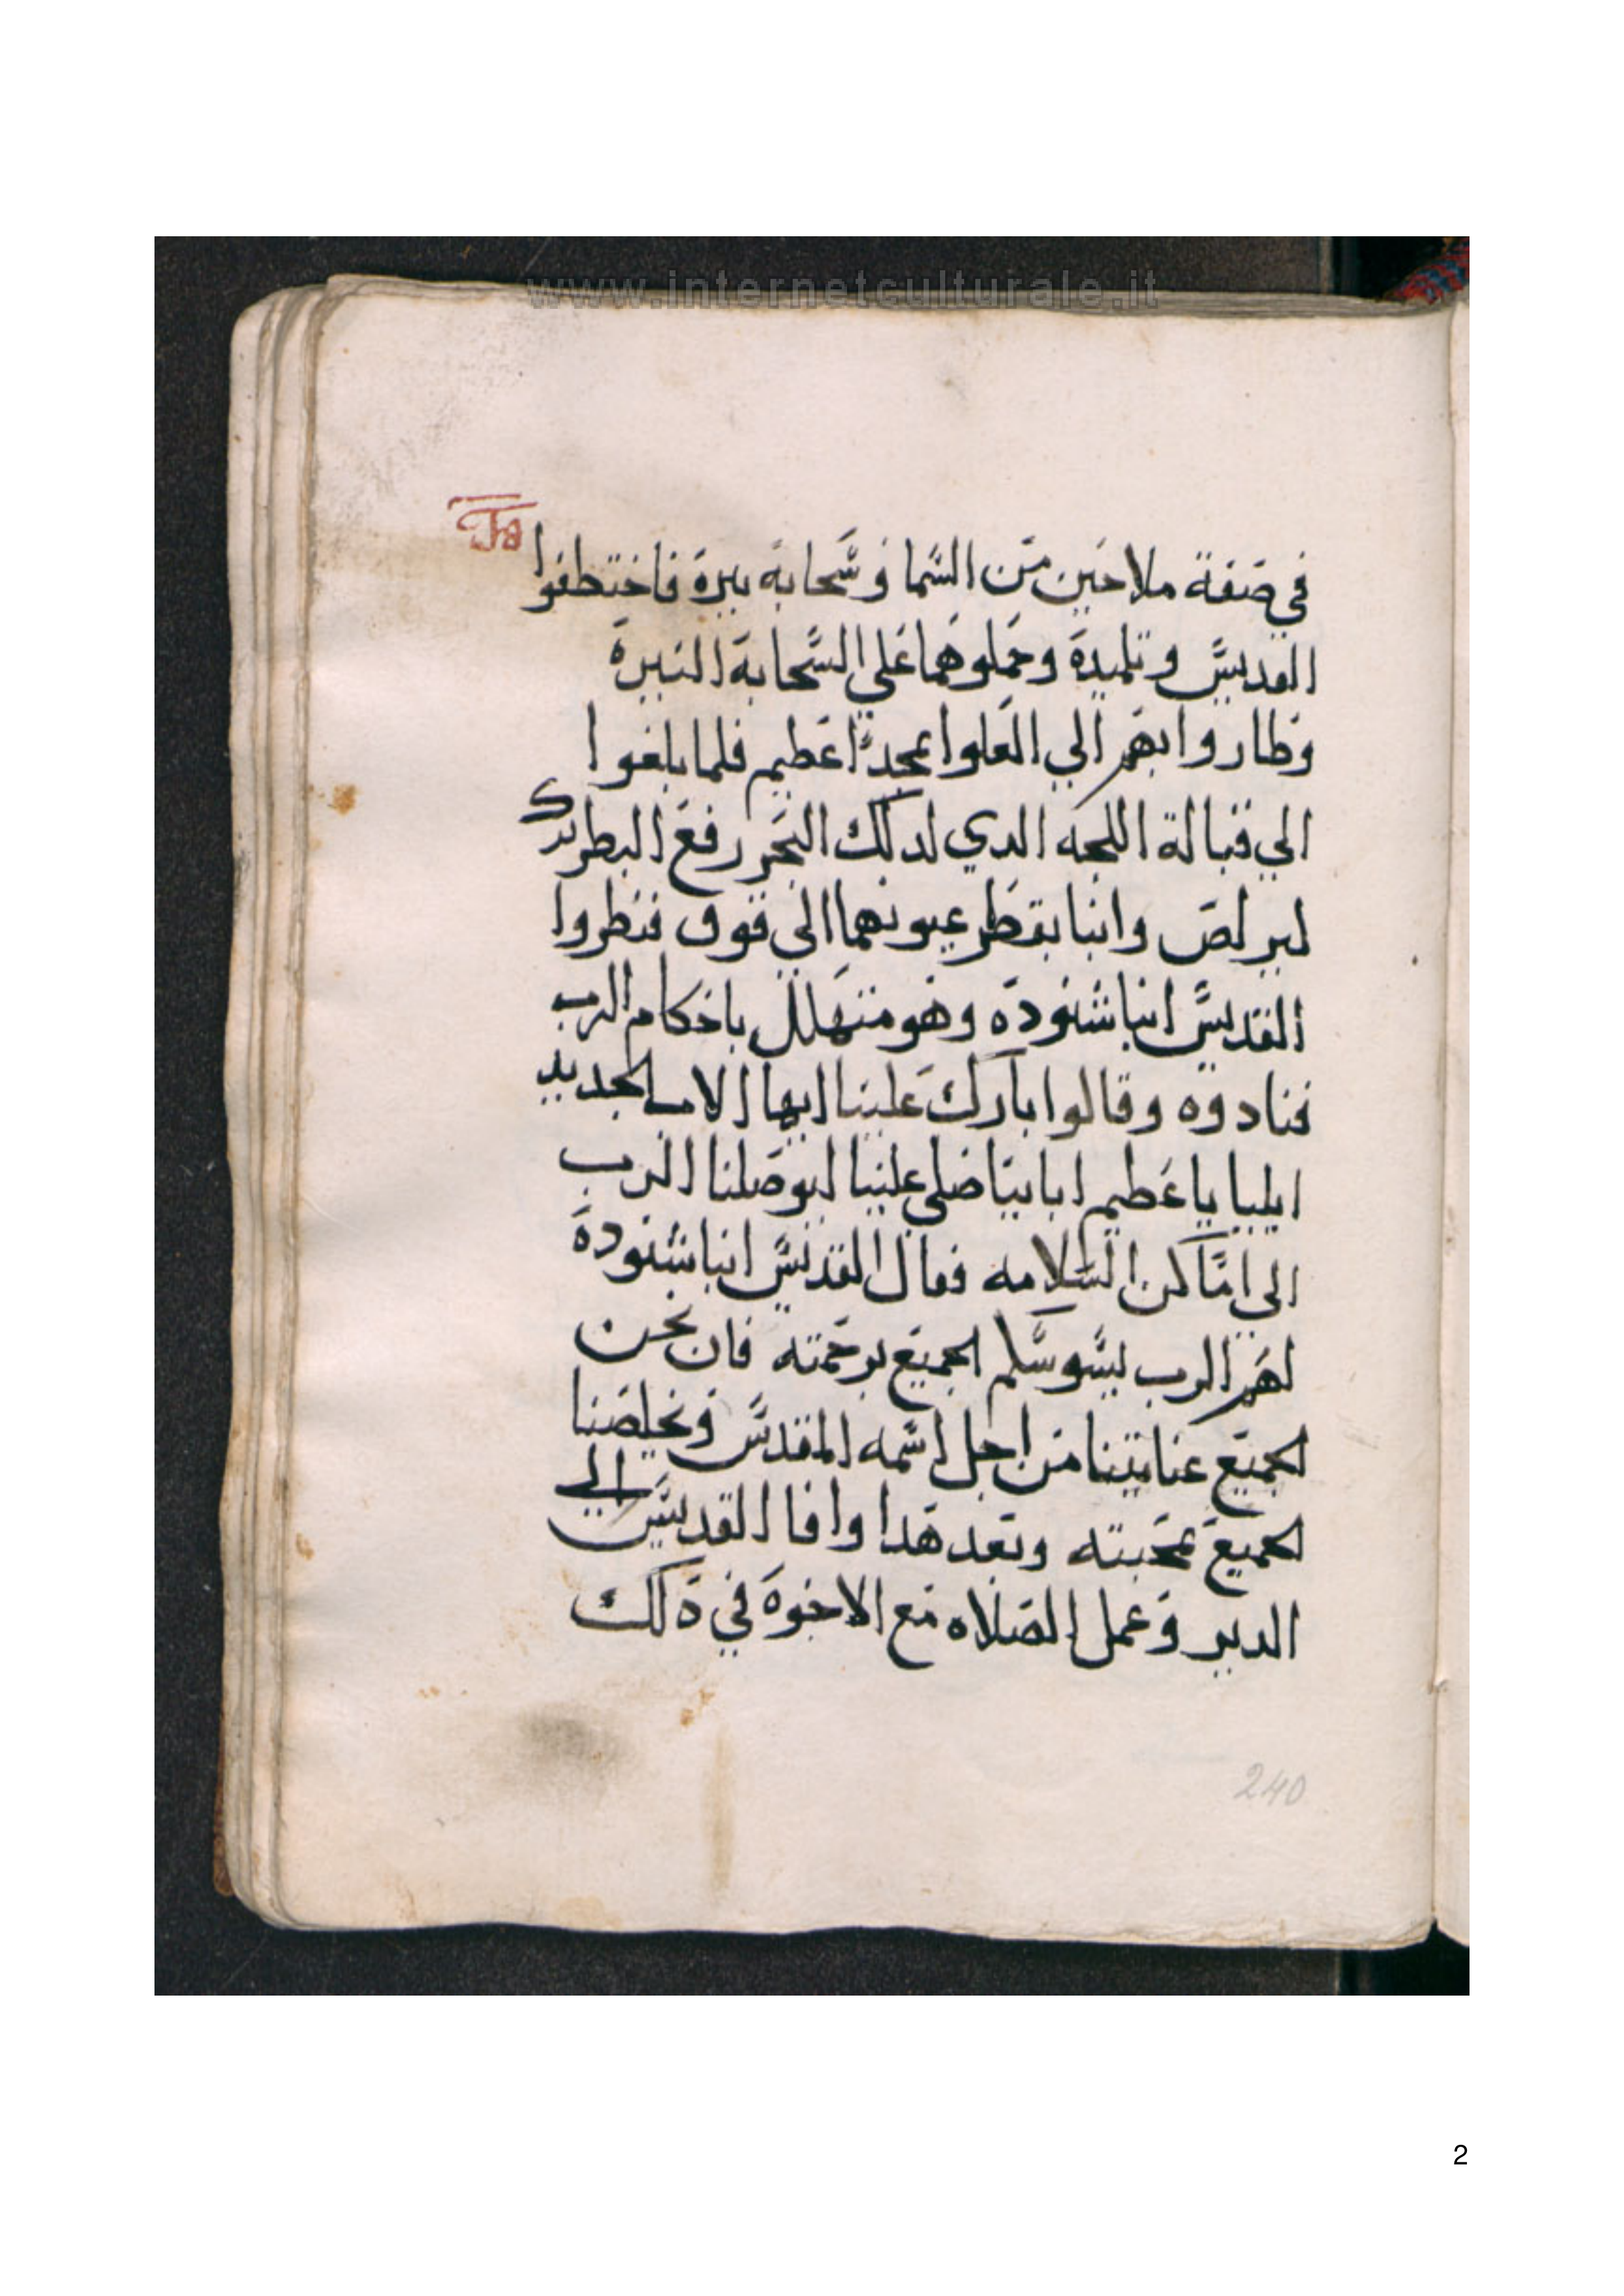 www.internetculturale.it
في صفة ملاحين من السما وسحابه نيرة فاختطفوا
القديس وتلميدة وحملوهما علي السحابة النيرة
وطاروا بهم الي العلوا بمجدًا عظيم فلما بلغوا
الي قبالة اللجه الدي لدلك البحر رفع البطريرك
كيرلص وانبا بقطر عيونهما الي فوق فنظروا
القديس انبا شنودة وهو متهلل باحكام الرب
فنادوه وقالوا بارك علينا ايها الاب الجديد
ايليا يا عظيم ابايتا صلي علينا ليوصلنا الرب
الي اماكن السلامه فقال القديس انبا شنودة
لهم الرب يسوسكم الجميع برحمته فان نحن
الجميع عنايتنا من اجل اسمه المقدس ونخلصنا
الجميع بمحبته وبعد هدا وافا القديس الي
الدير وعمل الصلاه مع الاخوة في دلك
240
2